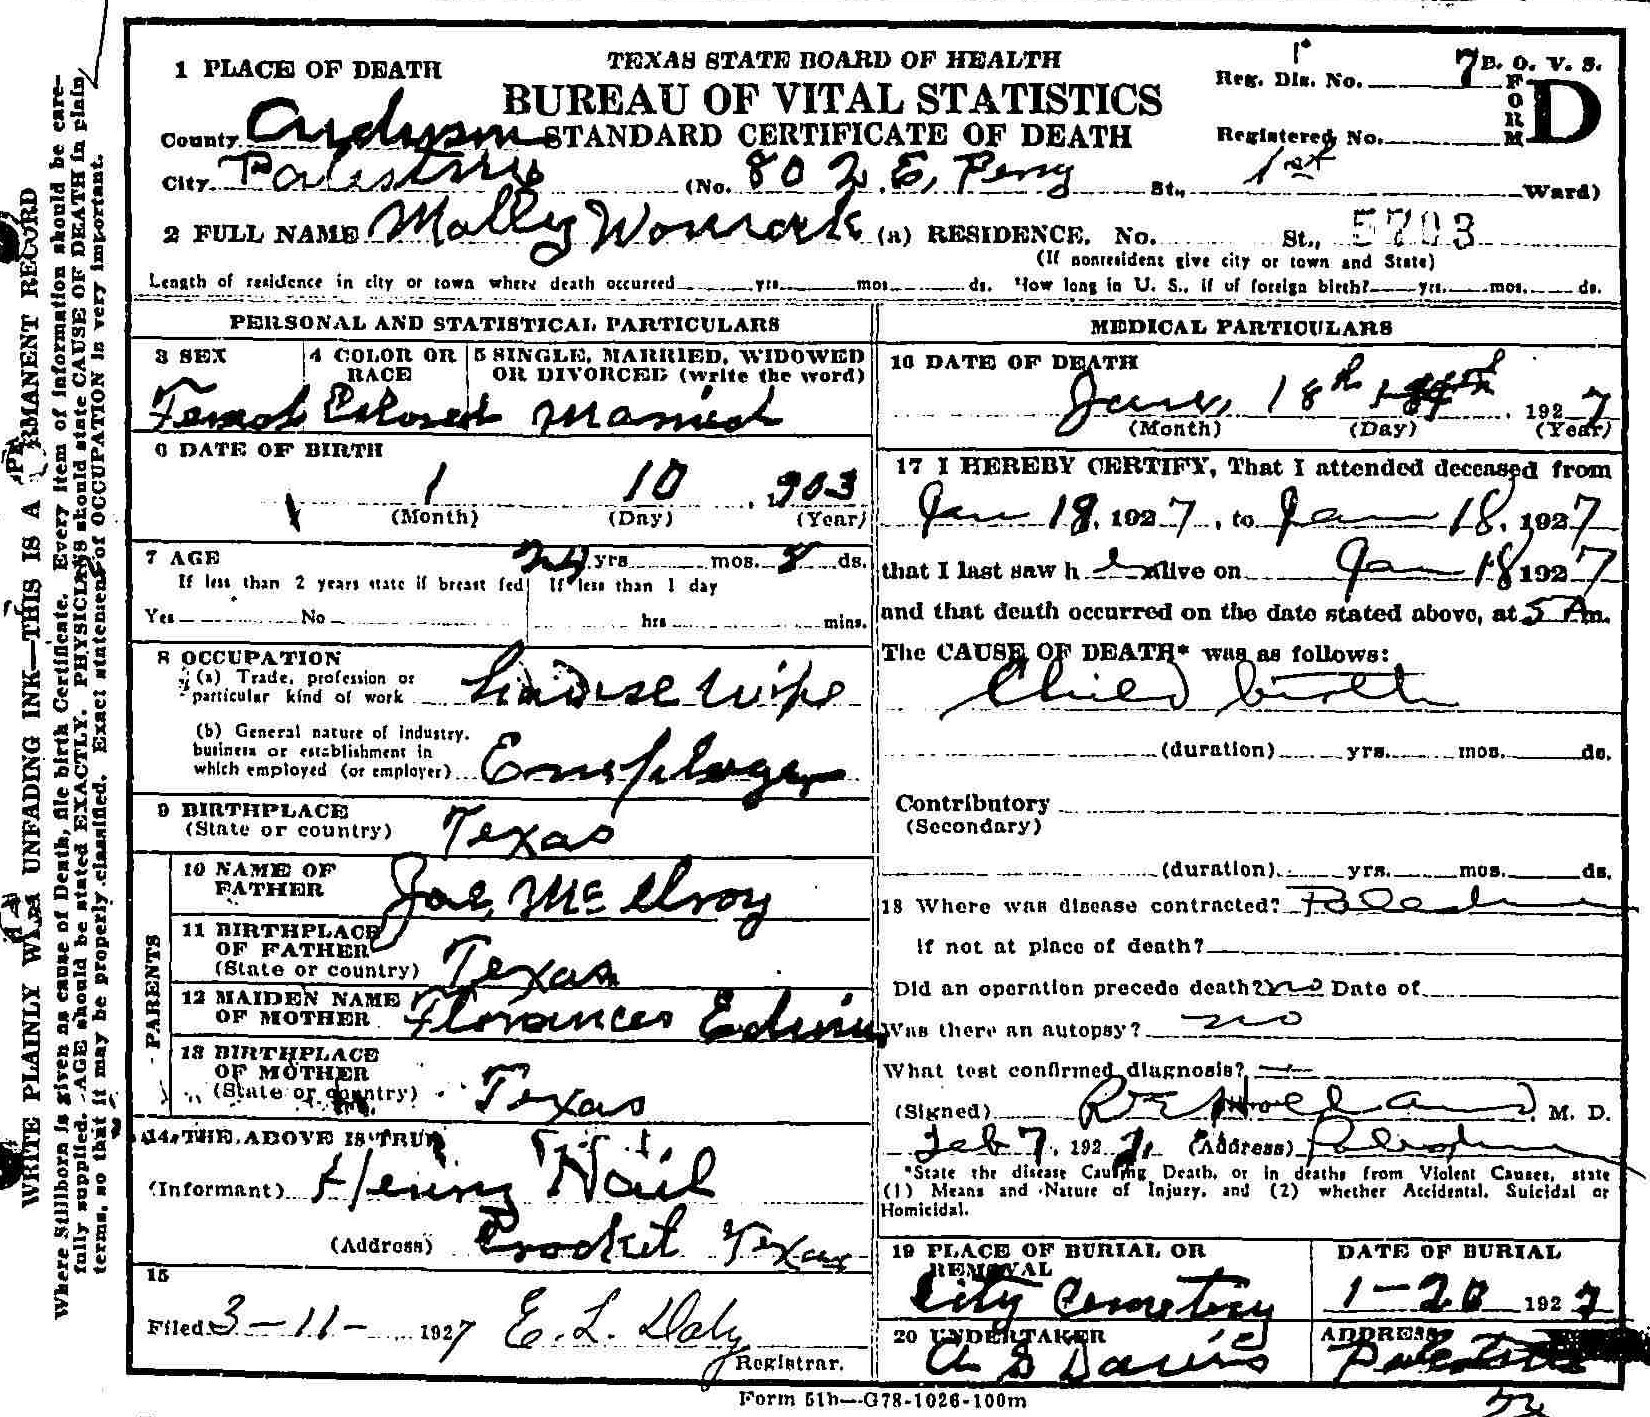 TEXAS STATE BOARD OF HEALTH
BUREAU OF VITAL STATISTICS
STANDARD CERTIFICATE OF DEATH
Reg. Dis. No. 7 B. O. V. S.
FORM D
Registered No.
1 PLACE OF DEATH
County
City Palestine (No. 802 E. Perry St., 1st Ward)
2 FULL NAME Molly Womack (a) RESIDENCE. No. St., 5703
(If nonresident give city or town and State)
Length of residence in city or town where death occurred yrs. mos. ds. How long in U. S., if of foreign birth? yrs. mos. ds.
PERSONAL AND STATISTICAL PARTICULARS
3 SEX 4 COLOR OR RACE 5 SINGLE, MARRIED, WIDOWED OR DIVORCED (write the word)
Colored Married
6 DATE OF BIRTH
1 10 , 903
(Month) (Day) (Year)
7 AGE 24 yrs. mos. 8 ds.
If less than 2 years state if breast fed If less than 1 day
Yes No hrs mins.
8 OCCUPATION
(a) Trade, profession or
particular kind of work House Wife
(b) General nature of industry,
business or establishment in
which employed (or employer)
9 BIRTHPLACE
(State or country) Texas
PARENTS
10 NAME OF
FATHER Joe McElroy
11 BIRTHPLACE
OF FATHER
(State or country) Texas
12 MAIDEN NAME
OF MOTHER
13 BIRTHPLACE
OF MOTHER
(State or country) Texas
14. THE ABOVE IS TRUE
(Informant) Nail
(Address) Crocket Texas
15
Filed 3-11- 1927 E. L. Daly
Registrar.
MEDICAL PARTICULARS
16 DATE OF DEATH
Jan, 18th 1927
(Month) (Day) (Year)
17 I HEREBY CERTIFY, That I attended deceased from
Jan 18, 1927, to Jan 18, 1927
that I last saw her alive on Jan 18 1927
and that death occurred on the date stated above, at 5 A m.
The CAUSE OF DEATH* was as follows:
Child birth
(duration) yrs. mos. ds.
Contributory
(Secondary)
(duration) yrs. mos. ds.
18 Where was disease contracted? Palestine
if not at place of death?
Did an operation precede death? no Date of
Was there an autopsy? no
What test confirmed diagnosis?
(Signed) M. D.
Feb 7, 192 (Address) Palestine
*State the disease Causing Death, or in deaths from Violent Causes, state
(1) Means and Nature of Injury, and (2) whether Accidental, Suicidal or
Homicidal.
19 PLACE OF BURIAL OR
REMOVAL
City Cemetery
DATE OF BURIAL
1-20 1927
20 UNDERTAKER
Davis
ADDRESS
Palestine
Form 51h—G78-1026-100m
WRITE PLAINLY WITH UNFADING INK—THIS IS A PERMANENT RECORD
Where Stillborn is given as cause of Death, file birth Certificate. Every item of information should be care-
fully supplied. AGE should be stated EXACTLY. PHYSICIANS should state CAUSE OF DEATH in plain
terms, so that it may be properly classified. Exact statement of OCCUPATION is very important.